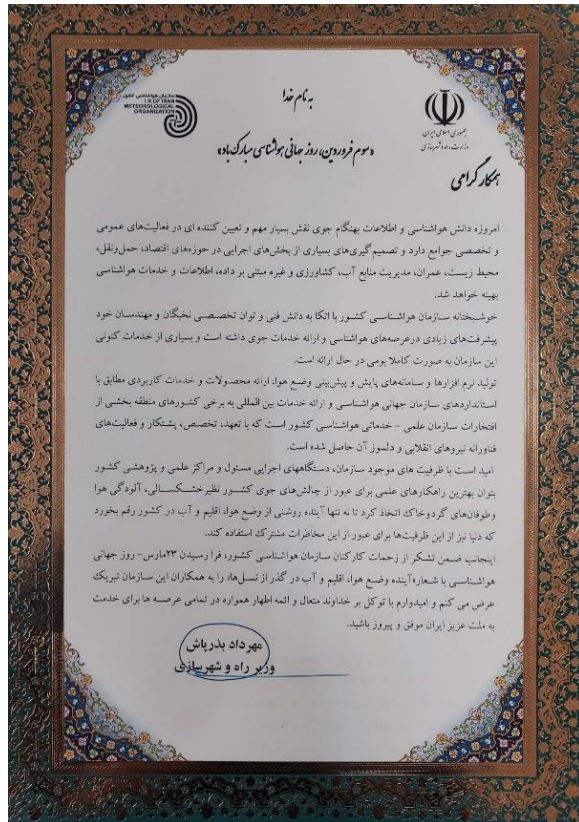 به نام خدا
سازمان هواشناسی کشور
I.R.OF IRAN
METEOROLOGICAL
ORGANIZATION
جمهوری اسلامی ایران
وزارت راه و شهرسازی
«سوم فروردین، روز جهانی هواشناسی مبارک باد»
همکار گرامی
امروزه دانش هواشناسی و اطلاعات بهنگام جوی نقش بسیار مهم و تعیین کننده ای در فعالیت‌های عمومی
و تخصصی جوامع دارد و تصمیم گیری‌های بسیاری از بخش‌های اجرایی در حوزه‌های اقتصاد، حمل‌ونقل،
محیط زیست، عمران، مدیریت منابع آب، کشاورزی و غیره مبتنی بر داده، اطلاعات و خدمات هواشناسی
بهینه خواهد شد.
خوشبختانه سازمان هواشناسی کشور با اتکا به دانش فنی و توان تخصصی نخبگان و مهندسان خود
پیشرفت‌های زیادی درعرصه‌های هواشناسی و ارائه خدمات جوی داشته است و بسیاری از خدمات کنونی
این سازمان به صورت کاملا بومی در حال ارائه است.
تولید نرم افزارها و سامانه‌های پایش و پیش‌بینی وضع هوا، ارائه محصولات و خدمات کاربردی مطابق با
استانداردهای سازمان جهانی هواشناسی و ارائه خدمات بین المللی به برخی کشورهای منطقه بخشی از
افتخارات سازمان علمی - خدماتی هواشناسی کشور است که با تعهد، تخصص، پشتکار و فعالیت‌های
فناورانه نیروهای انقلابی و دلسوز آن حاصل شده است.
امید است با ظرفیت های موجود سازمان، دستگاههای اجرایی مسئول و مراکز علمی و پژوهشی کشور
بتوان بهترین راهکارهای علمی برای عبور از چالش‌های جوی کشور نظیر خشکسالی، آلودگی هوا
وطوفان‌های گردوخاک اتخاذ کرد تا نه تنها آینده روشنی از وضع هوا، اقلیم و آب در کشور رقم بخورد
که دنیا نیز از این ظرفیت‌ها برای عبور از این مخاطرات مشترک استفاده کند.
اینجانب ضمن تشکر از زحمات کارکنان سازمان هواشناسی کشور، فرا رسیدن ۲۳مارس- روز جهانی
هواشناسی با شعار«آینده وضع هوا، اقلیم و آب در گذر از نسل‌ها» را به همکاران این سازمان تبریک
عرض می کنم و امیدوارم با توکل بر خداوند متعال و ائمه اطهار همواره در تمامی عرصه ها برای خدمت
به ملت عزیز ایران موفق و پیروز باشید.
مهرداد بذرپاش
وزیر راه و شهرسازی